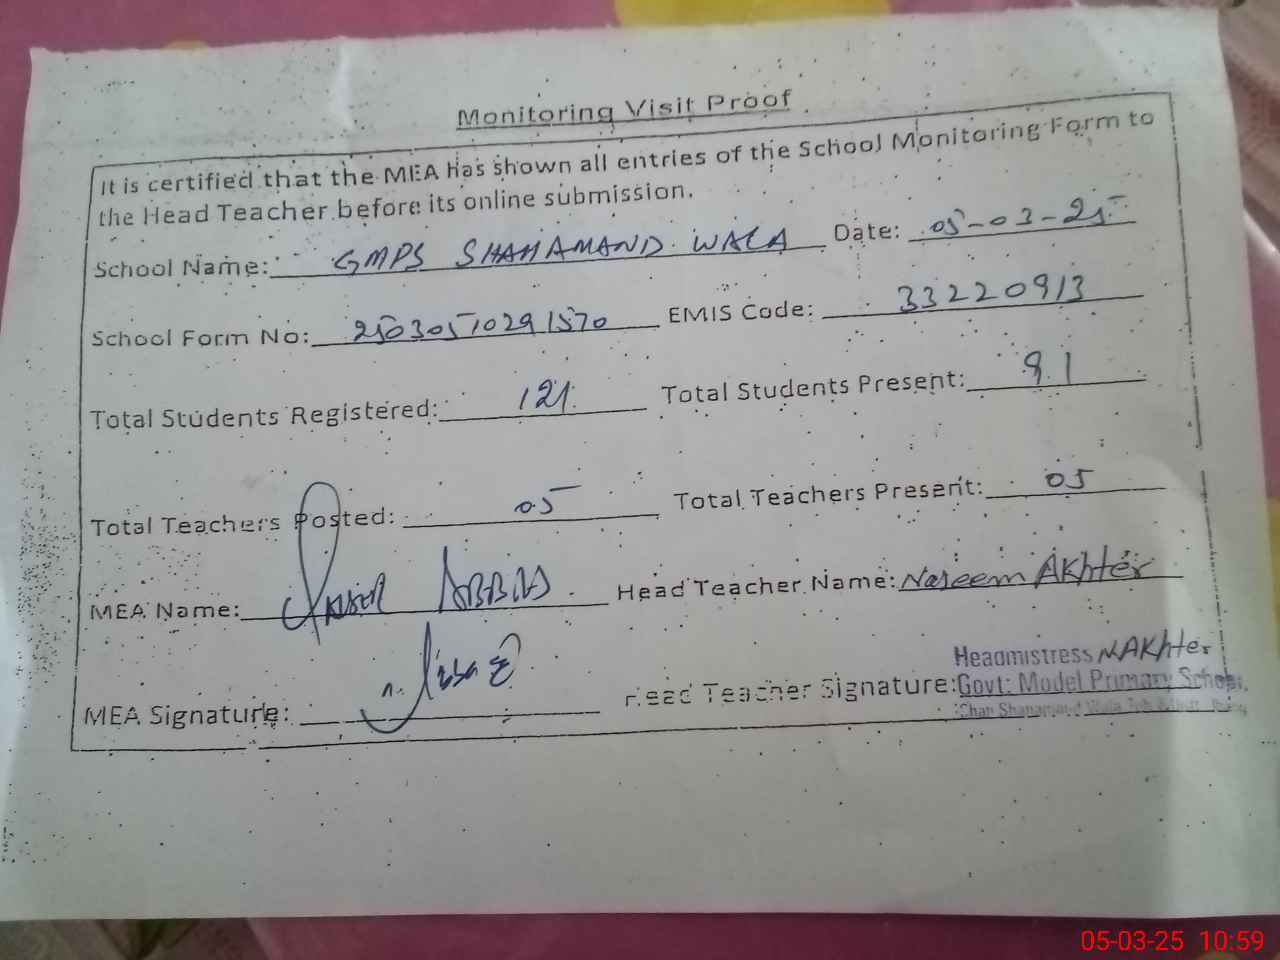 Monitoring Visit Proof
It is certified that the MEA has shown all entries of the School Monitoring Form to
the Head Teacher before its online submission.
School Name: GMPS SHAHAMAND WALA Date: 05-03-25
School Form No: 25030510291570 EMIS Code: 33220913
Total Students Registered: 121 Total Students Present: 91
Total Teachers Posted: 05 Total Teachers Present: 05
MEA Name: ABBAS Head Teacher Name: Naseem Akhter
MEA Signature: Head Teacher Signature: NAkhter
Headmistress
Govt: Model Primary School,
Chah Shahamand Wala
05-03-25 10:59